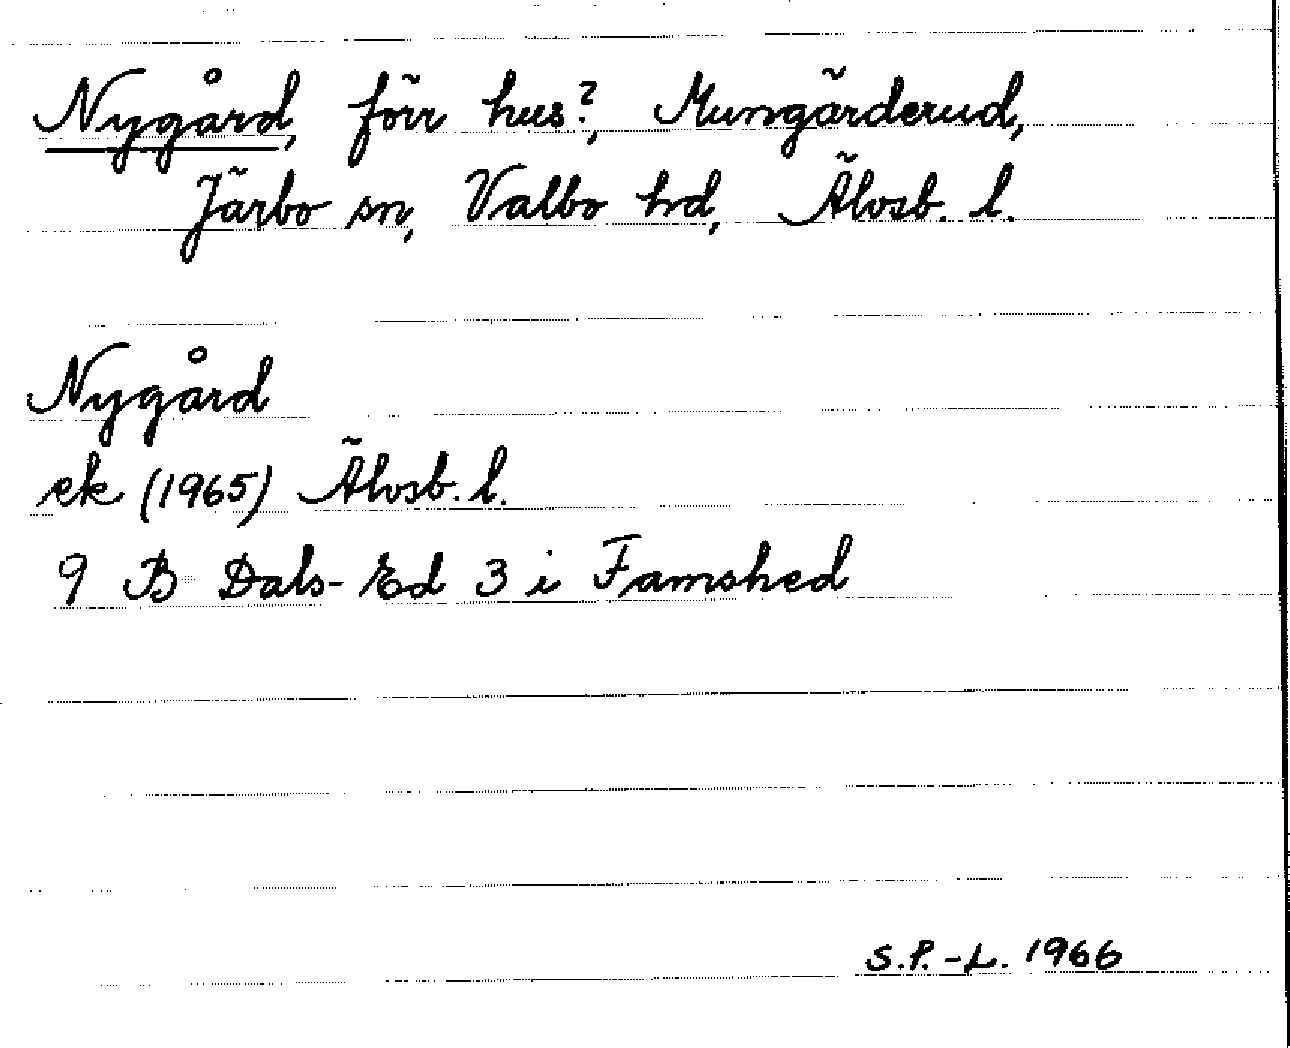 Nygård, förr hus?, Mungärderud,
Järbo sn, Valbo hd, Älvsb. l.
Nygård
ek (1965) Älvsb. l.
9 B Dals-Ed 3 i Famshed
S.P.-L. 1966